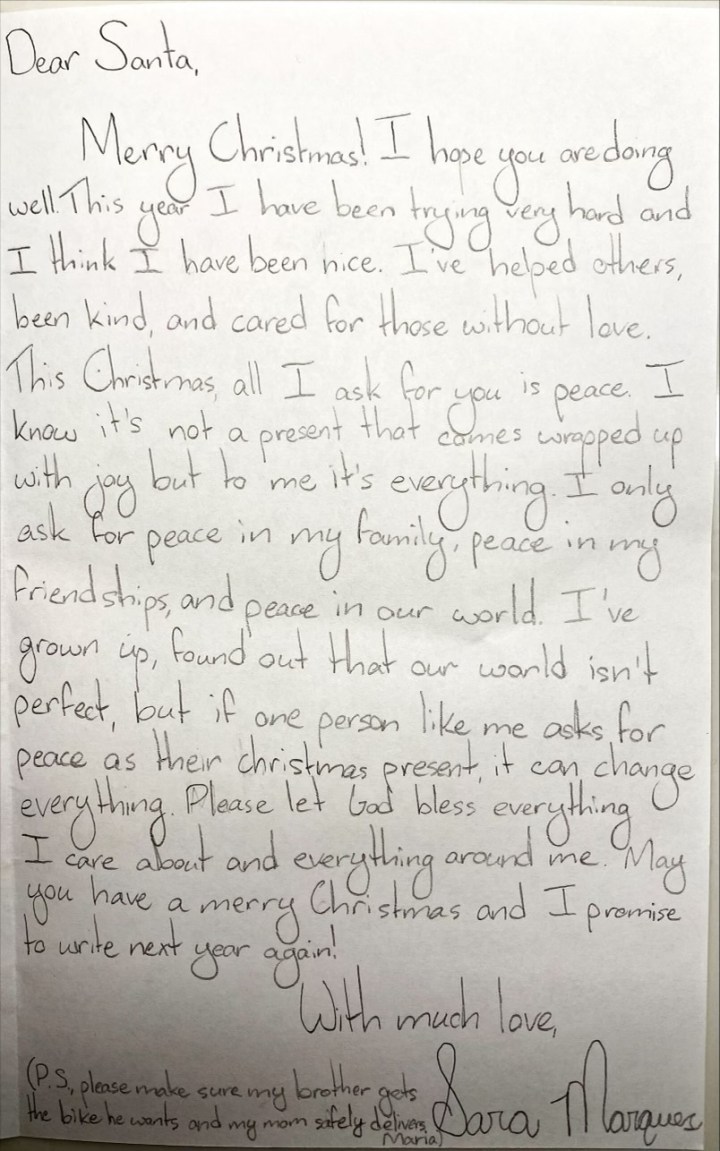 Dear Santa,
Merry Christmas! I hope you are doing
well. This year I have been trying very hard and
I think I have been nice. I've helped others,
been kind, and cared for those without love.
This Christmas, all I ask for you is peace. I
know it's not a present that comes wrapped up
with joy but to me it's everything. I only
ask for peace in my family, peace in my
friendships, and peace in our world. I've
grown up, found out that our world isn't
perfect, but if one person like me asks for
peace as their christmas present, it can change
everything. Please let God bless everything
I care about and everything around me. May
you have a merry Christmas and I promise
to write next year again!
With much love,
(P.S., please make sure my brother gets
the bike he wants and my mom safely delivers
Maria)
Sara Marques